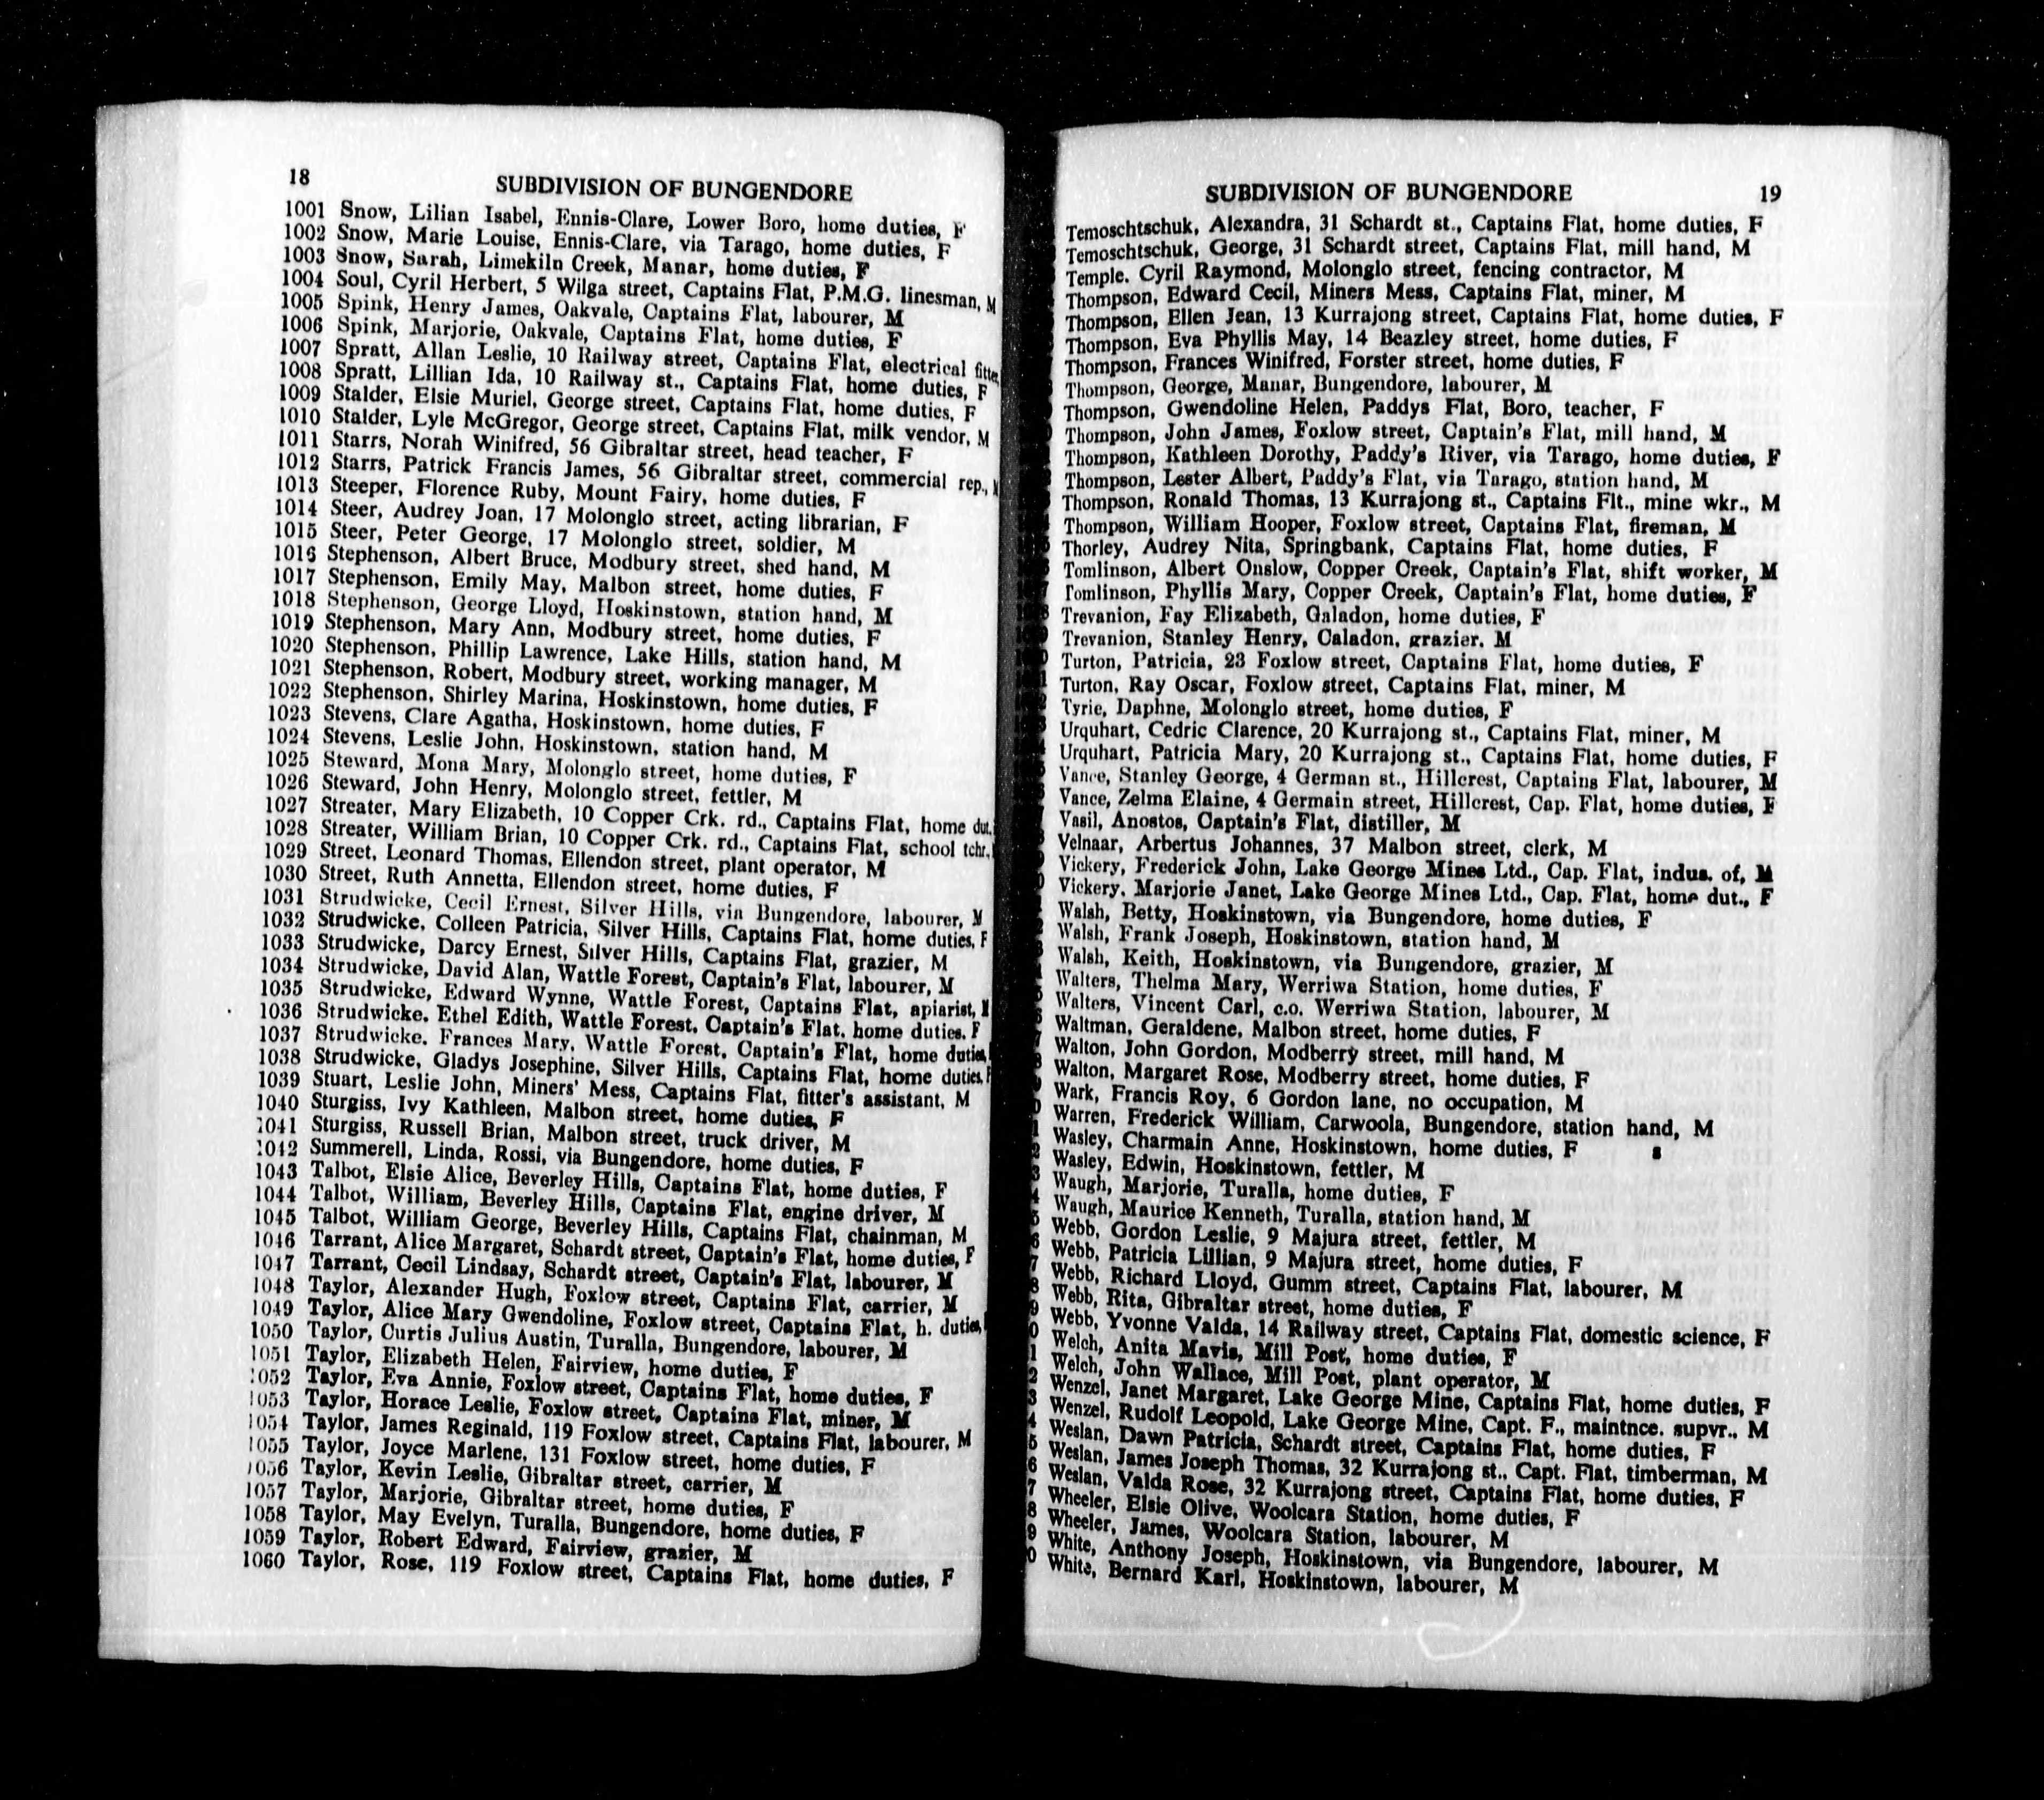 18
SUBDIVISION OF BUNGENDORE
1001 Snow, Lilian Isabel, Ennis-Clare, Lower Boro, home duties, F
1002 Snow, Marie Louise, Ennis-Clare, via Tarago, home duties, F
1003 Snow, Sarah, Limekiln Creek, Manar, home duties, F
1004 Soul, Cyril Herbert, 5 Wilga street, Captains Flat, P.M.G. linesman, M
1005 Spink, Henry James, Oakvale, Captains Flat, labourer, M
1006 Spink, Marjorie, Oakvale, Captains Flat, home duties, F
1007 Spratt, Allan Leslie, 10 Railway street, Captains Flat, electrical fitter,
1008 Spratt, Lillian Ida, 10 Railway st., Captains Flat, home duties, F
1009 Stalder, Elsie Muriel, George street, Captains Flat, home duties, F
1010 Stalder, Lyle McGregor, George street, Captains Flat, milk vendor, M
1011 Starrs, Norah Winifred, 56 Gibraltar street, head teacher, F
1012 Starrs, Patrick Francis James, 56 Gibraltar street, commercial rep.,
1013 Steeper, Florence Ruby, Mount Fairy, home duties, F
1014 Steer, Audrey Joan, 17 Molonglo street, acting librarian, F
1015 Steer, Peter George, 17 Molonglo street, soldier, M
1016 Stephenson, Albert Bruce, Modbury street, shed hand, M
1017 Stephenson, Emily May, Malbon street, home duties, F
1018 Stephenson, George Lloyd, Hoskinstown, station hand, M
1019 Stephenson, Mary Ann, Modbury street, home duties, F
1020 Stephenson, Phillip Lawrence, Lake Hills, station hand, M
1021 Stephenson, Robert, Modbury street, working manager, M
1022 Stephenson, Shirley Marina, Hoskinstown, home duties, F
1023 Stevens, Clare Agatha, Hoskinstown, home duties, F
1024 Stevens, Leslie John, Hoskinstown, station hand, M
1025 Steward, Mona Mary, Molonglo street, home duties, F
1026 Steward, John Henry, Molonglo street, fettler, M
1027 Streater, Mary Elizabeth, 10 Copper Crk. rd., Captains Flat, home dut.
1028 Streater, William Brian, 10 Copper Crk. rd., Captains Flat, school tchr.
1029 Street, Leonard Thomas, Ellendon street, plant operator, M
1030 Street, Ruth Annetta, Ellendon street, home duties, F
1031 Strudwicke, Cecil Ernest, Silver Hills, via Bungendore, labourer, M
1032 Strudwicke, Colleen Patricia, Silver Hills, Captains Flat, home duties, F
1033 Strudwicke, Darcy Ernest, Silver Hills, Captains Flat, grazier, M
1034 Strudwicke, David Alan, Wattle Forest, Captain's Flat, labourer, M
1035 Strudwicke, Edward Wynne, Wattle Forest, Captains Flat, apiarist, M
1036 Strudwicke, Ethel Edith, Wattle Forest, Captain's Flat, home duties, F
1037 Strudwicke, Frances Mary, Wattle Forest, Captain's Flat, home duties,
1038 Strudwicke, Gladys Josephine, Silver Hills, Captains Flat, home duties, F
1039 Stuart, Leslie John, Miners' Mess, Captains Flat, fitter's assistant, M
1040 Sturgiss, Ivy Kathleen, Malbon street, home duties, F
1041 Sturgiss, Russell Brian, Malbon street, truck driver, M
1042 Summerell, Linda, Rossi, via Bungendore, home duties, F
1043 Talbot, Elsie Alice, Beverley Hills, Captains Flat, home duties, F
1044 Talbot, William, Beverley Hills, Captains Flat, engine driver, M
1045 Talbot, William George, Beverley Hills, Captains Flat, chainman, M
1046 Tarrant, Alice Margaret, Schardt street, Captain's Flat, home duties, F
1047 Tarrant, Cecil Lindsay, Schardt street, Captain's Flat, labourer, M
1048 Taylor, Alexander Hugh, Foxlow street, Captains Flat, carrier, M
1049 Taylor, Alice Mary Gwendoline, Foxlow street, Captains Flat, h. duties,
1050 Taylor, Curtis Julius Austin, Turalla, Bungendore, labourer, M
1051 Taylor, Elizabeth Helen, Fairview, home duties, F
1052 Taylor, Eva Annie, Foxlow street, Captains Flat, home duties, F
1053 Taylor, Horace Leslie, Foxlow street, Captains Flat, miner, M
1054 Taylor, James Reginald, 119 Foxlow street, Captains Flat, labourer, M
1055 Taylor, Joyce Marlene, 131 Foxlow street, home duties, F
1056 Taylor, Kevin Leslie, Gibraltar street, carrier, M
1057 Taylor, Marjorie, Gibraltar street, home duties, F
1058 Taylor, May Evelyn, Turalla, Bungendore, home duties, F
1059 Taylor, Robert Edward, Fairview, grazier, M
1060 Taylor, Rose, 119 Foxlow street, Captains Flat, home duties, F
SUBDIVISION OF BUNGENDORE
19
Temoschtschuk, Alexandra, 31 Schardt st., Captains Flat, home duties, F
Temoschtschuk, George, 31 Schardt street, Captains Flat, mill hand, M
Temple. Cyril Raymond, Molonglo street, fencing contractor, M
Thompson, Edward Cecil, Miners Mess, Captains Flat, miner, M
Thompson, Ellen Jean, 13 Kurrajong street, Captains Flat, home duties, F
Thompson, Eva Phyllis May, 14 Beazley street, home duties, F
Thompson, Frances Winifred, Forster street, home duties, F
Thompson, George, Manar, Bungendore, labourer, M
Thompson, Gwendoline Helen, Paddys Flat, Boro, teacher, F
Thompson, John James, Foxlow street, Captain's Flat, mill hand, M
Thompson, Kathleen Dorothy, Paddy's River, via Tarago, home duties, F
Thompson, Lester Albert, Paddy's Flat, via Tarago, station hand, M
Thompson, Ronald Thomas, 13 Kurrajong st., Captains Flt., mine wkr., M
Thompson, William Hooper, Foxlow street, Captains Flat, fireman, M
Thorley, Audrey Nita, Springbank, Captains Flat, home duties, F
Tomlinson, Albert Onslow, Copper Creek, Captain's Flat, shift worker, M
Tomlinson, Phyllis Mary, Copper Creek, Captain's Flat, home duties, F
Trevanion, Fay Elizabeth, Galadon, home duties, F
Trevanion, Stanley Henry, Caladon, grazier. M
Turton, Patricia, 23 Foxlow street, Captains Flat, home duties, F
Turton, Ray Oscar, Foxlow street, Captains Flat, miner, M
Tyrie, Daphne, Molonglo street, home duties, F
Urquhart, Cedric Clarence, 20 Kurrajong st., Captains Flat, miner, M
Urquhart, Patricia Mary, 20 Kurrajong st., Captains Flat, home duties, F
Vance, Stanley George, 4 German st., Hillcrest, Captains Flat, labourer, M
Vance, Zelma Elaine, 4 Germain street, Hillcrest, Cap. Flat, home duties, F
Vasil, Anostos, Captain's Flat, distiller, M
Velnaar, Arbertus Johannes, 37 Malbon street, clerk, M
Vickery, Frederick John, Lake George Mines Ltd., Cap. Flat, indus. of, M
Vickery, Marjorie Janet, Lake George Mines Ltd., Cap. Flat, home dut., F
Walsh, Betty, Hoskinstown, via Bungendore, home duties, F
Walsh, Frank Joseph, Hoskinstown, station hand, M
Walsh, Keith, Hoskinstown, via Bungendore, grazier, M
Walters, Thelma Mary, Werriwa Station, home duties, F
Walters, Vincent Carl, c.o. Werriwa Station, labourer, M
Waltman, Geraldene, Malbon street, home duties, F
Walton, John Gordon, Modberry street, mill hand, M
Walton, Margaret Rose, Modberry street, home duties, F
Wark, Francis Roy, 6 Gordon lane, no occupation, M
Warren, Frederick William, Carwoola, Bungendore, station hand, M
Wasley, Charmain Anne, Hoskinstown, home duties, F
Wasley, Edwin, Hoskinstown, fettler, M
Waugh, Marjorie, Turalla, home duties, F
Waugh, Maurice Kenneth, Turalla, station hand, M
Webb, Gordon Leslie, 9 Majura street, fettler, M
Webb, Patricia Lillian, 9 Majura street, home duties, F
Webb, Richard Lloyd, Gumm street, Captains Flat, labourer, M
Webb, Rita, Gibraltar street, home duties, F
Webb, Yvonne Valda, 14 Railway street, Captains Flat, domestic science, F
Welch, Anita Mavis, Mill Post, home duties, F
Welch, John Wallace, Mill Post, plant operator, M
Wenzel, Janet Margaret, Lake George Mine, Captains Flat, home duties, F
Wenzel, Rudolf Leopold, Lake George Mine, Capt. F., maintnce. supvr., M
Weslan, Dawn Patricia, Schardt street, Captains Flat, home duties, F
Weslan, James Joseph Thomas, 32 Kurrajong st., Capt. Flat, timberman, M
Weslan, Valda Rose, 32 Kurrajong street, Captains Flat, home duties, F
Wheeler, Elsie Olive, Woolcara Station, home duties, F
Wheeler, James, Woolcara Station, labourer, M
White, Anthony Joseph, Hoskinstown, via Bungendore, labourer, M
White, Bernard Karl, Hoskinstown, labourer, M